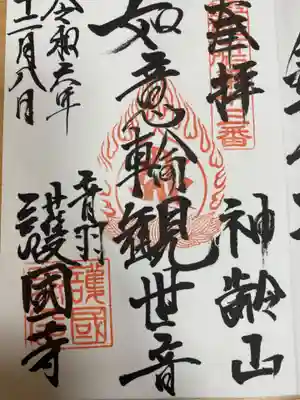 奉拝
神齢山
如意輪観世音
音羽
護國寺
令和六年
十二月八日
護國